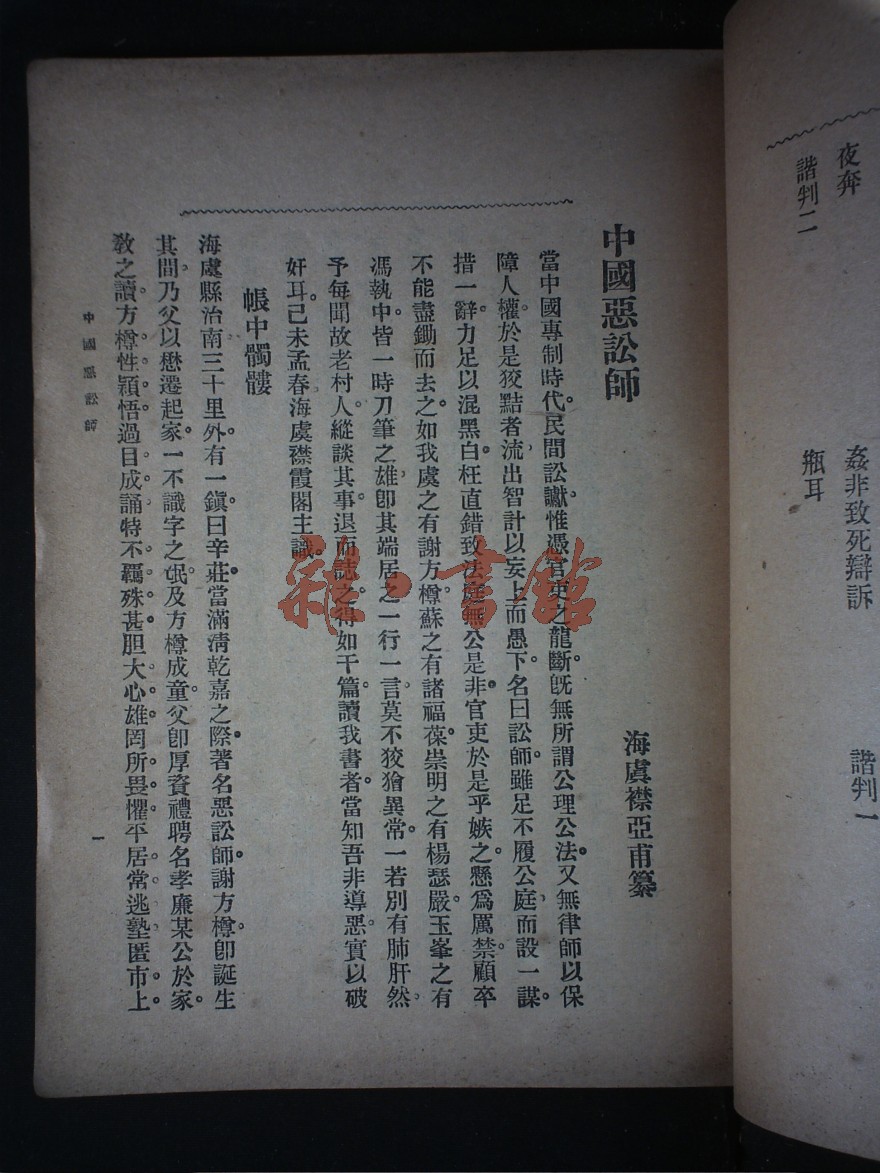 夜奔
諧判二
姦非致死辯訴
瓶耳
諧判一
中國惡訟師
海虞襟亞甫纂
當中國專制時代。民間訟讞惟憑官吏之龍斷。旣無所謂公理公法。又無律師以保
障人權。於是狡黠者流。出智計以妄上而愚下。名曰訟師。雖足不履公庭。而設一謀。
措一辭。力足以混黑白。枉直錯致。法庭無公是非。官吏於是乎嫉之。懸爲厲禁。顧卒
不能盡鋤而去之。如我虞之有謝方樽。蘇之有諸福葆。崇明之有楊瑟嚴。玉峯之有
馮執中。皆一時刀筆之雄。卽其端居之一行一言。莫不狡獪異常。一若別有肺肝然。
予每聞故老村人。縱談其事。退而誌之。得如干篇。讀我書者。當知吾非導惡。實以破
奸耳。己未孟春海虞襟霞閣主識。
帳中髑髏
海虞縣治南三十里外。有一鎭曰辛莊。當滿淸乾嘉之際。著名惡訟師謝方樽。卽誕生
其間。乃父以懋遷起家。一不識字之氓。及方樽成童。父卽厚資禮聘名孝廉某公於家。
敎之讀。方樽性穎悟。過目成誦。特不羈殊甚。胆大心雄。罔所畏懼。平居常逃塾匿市上。
中國惡訟師
一
雜·書館